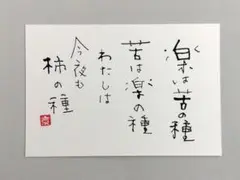 楽は苦の種
苦は楽の種
わたしは
今夜も
柿の種